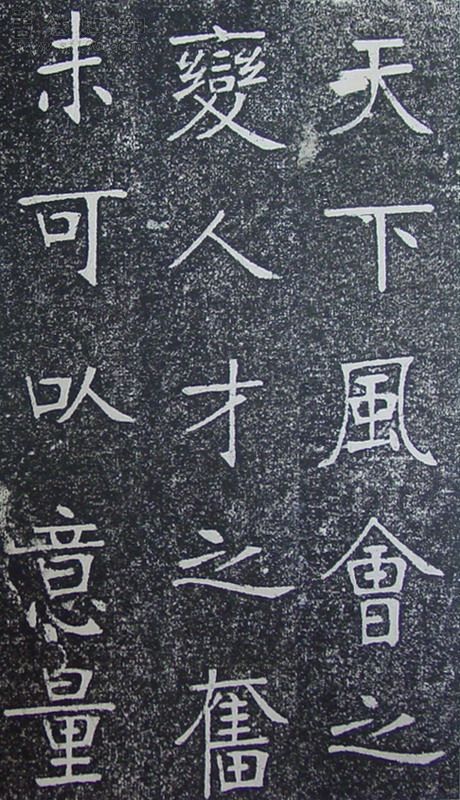 天下風會之
變人才之奮
未可以意量